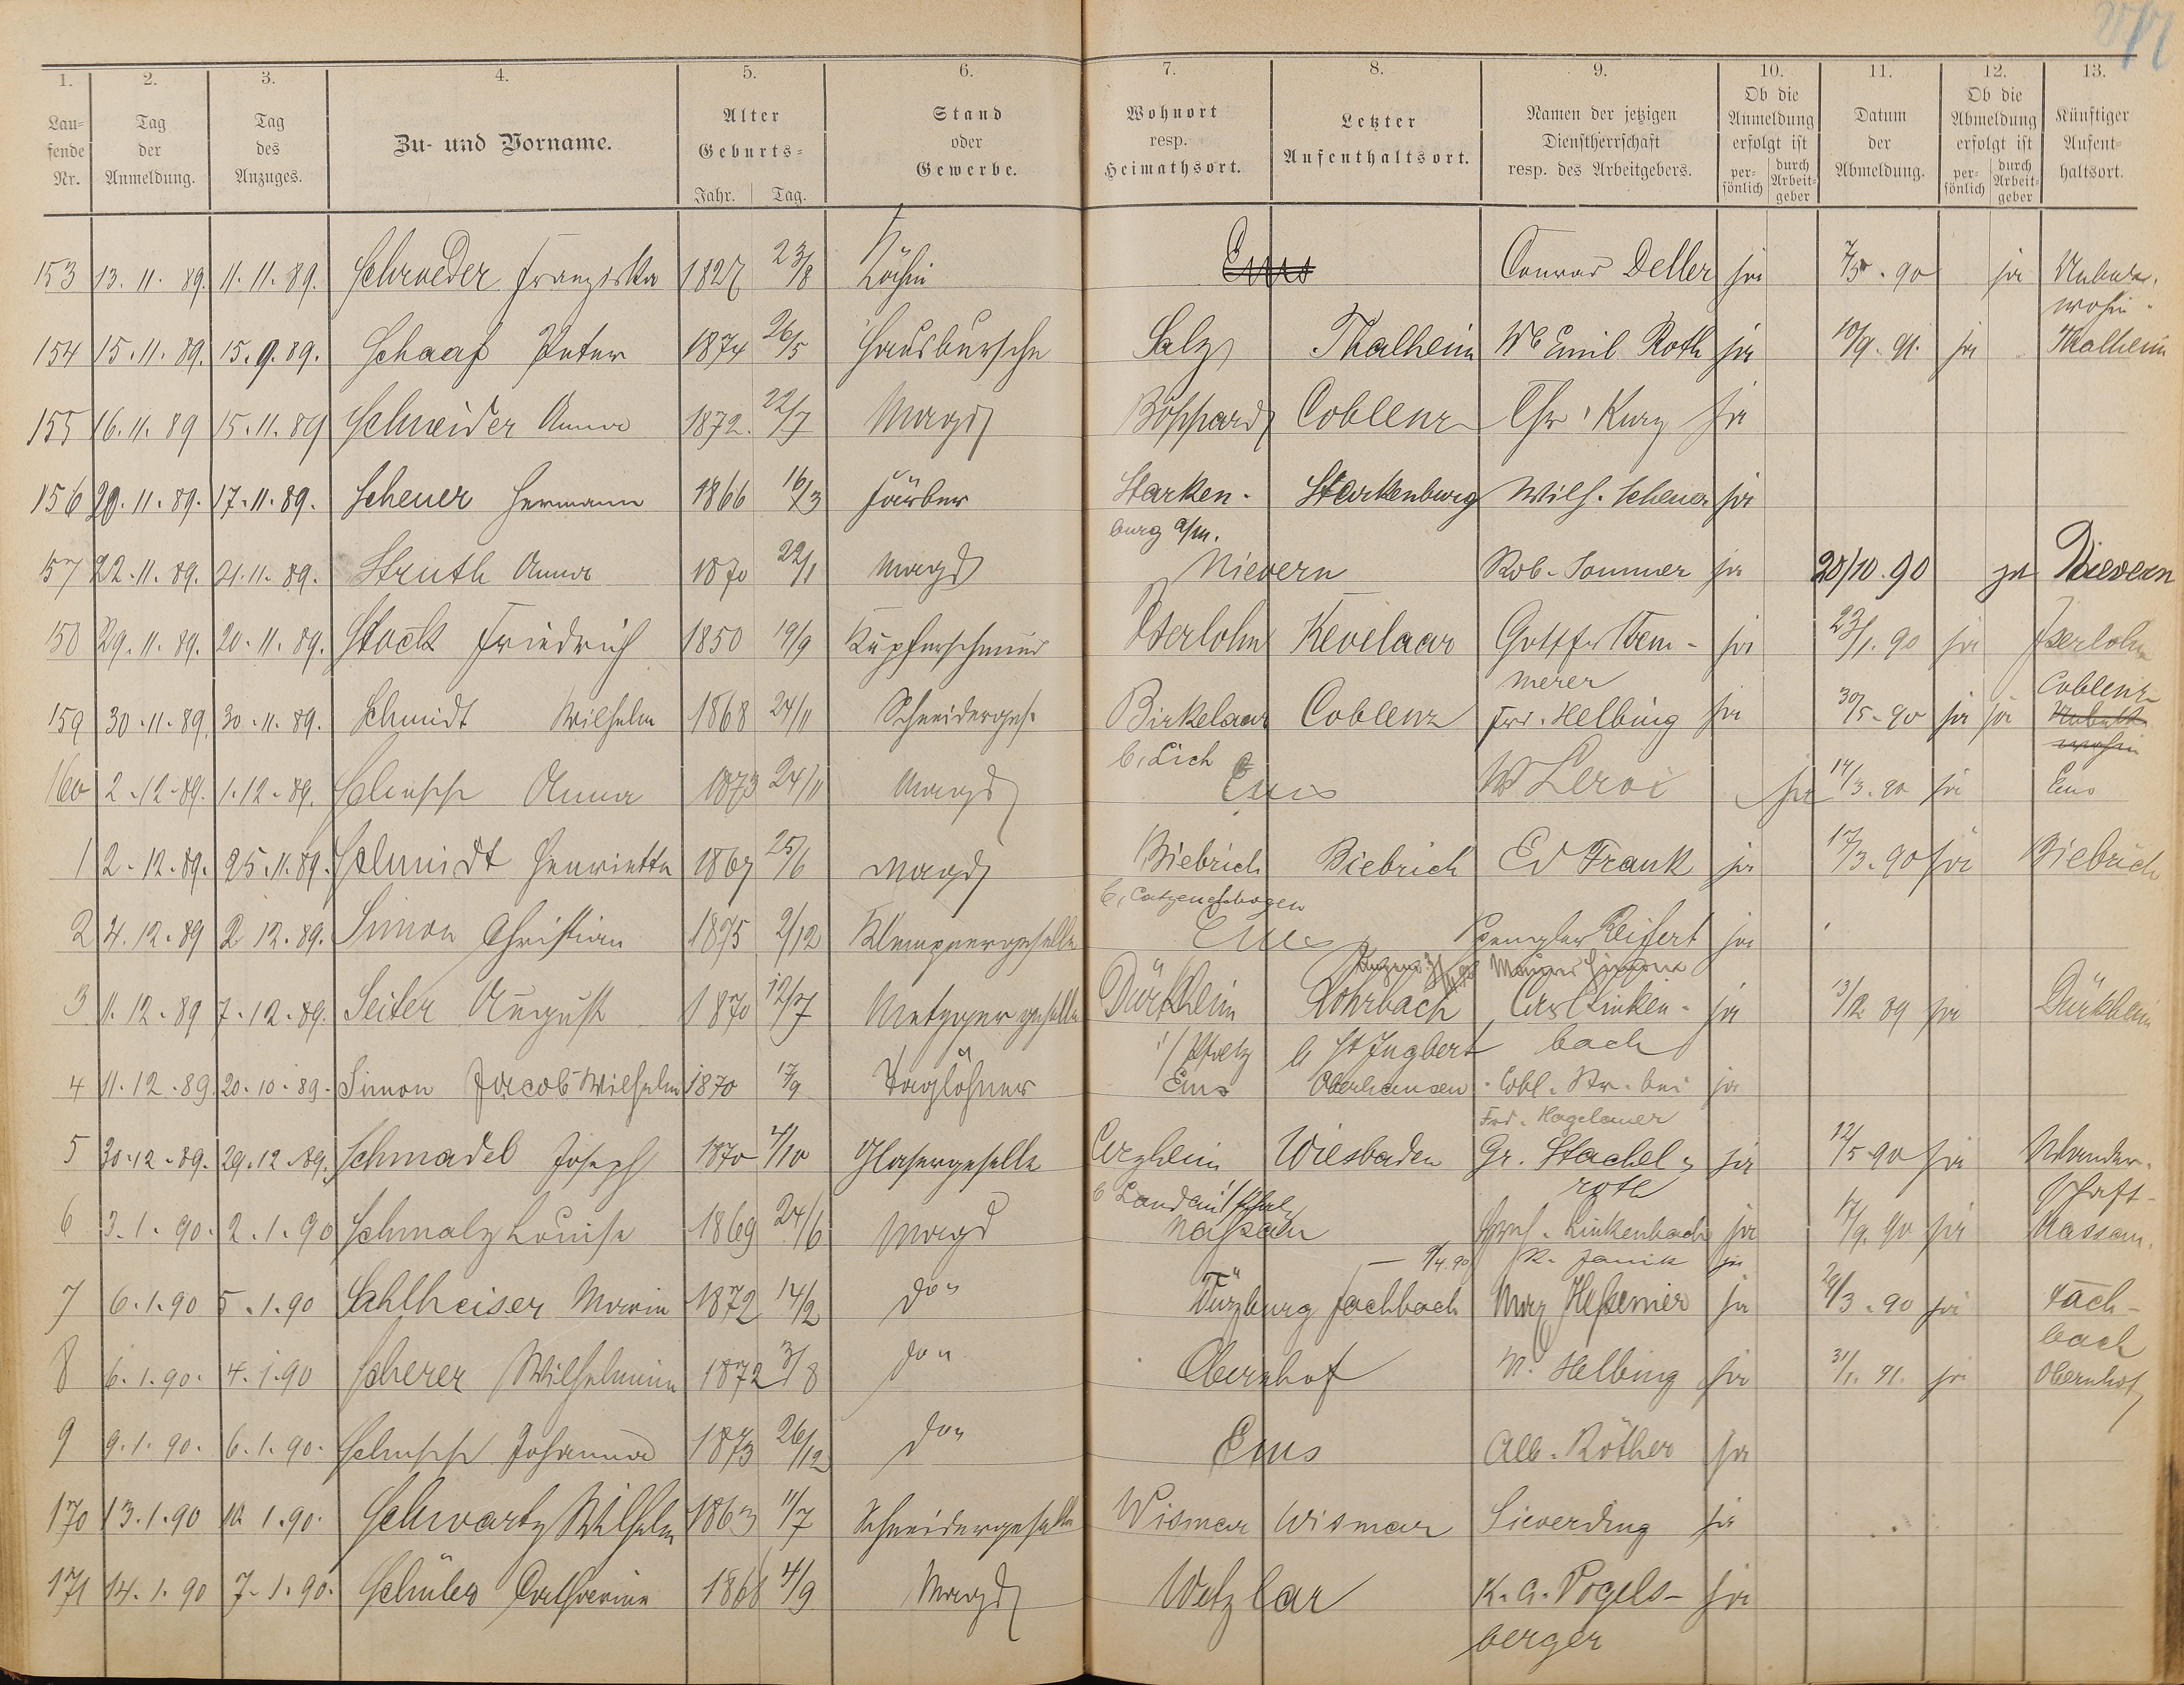 1. 2. 3. 4. 5. 6. 7. 8. 9. 10. 11. 12. 13.
Lau- fende Nr. | Tag der Anmeldung. | Tag des Anzuges. | Zu- und Vorname. | Alter Geburts- Jahr. Tag. | Stand oder Gewerbe. | Wohnort resp. Heimathsort. | Letzter Aufenthaltsort. | Namen der jetzigen Dienstherrschaft resp. des Arbeitgebers. | Ob die Anmeldung erfolgt ist per- sönlich durch Arbeit- geber | Datum der Abmeldung. | Ob die Abmeldung erfolgt ist per- sönlich durch Arbeit- geber | Künftiger Aufent- haltsort.
153 13.11.89. 11.11.89. Schroeder Franziska 1827 23/8 Köchin Ems Conrad Deller ja 7/5.90 ja Unbek.
wohin.
154 15.11.89. 15.9.89. Schaaf Peter 1874 26/5 Hausbursche Salz Thalheim Wb Emil Roth ja 10/9.91. ja Thalheim
155 16.11.89 15.11.89 Schneider Anna 1872. 22/7 Magd Boppard Coblenz Chr. Kurz ja
156 20.11.89. 17.11.89. Scheuer Hermann 1866 16/3 Färber Starken- Starkenburg Wilh. Scheuer ja
burg a/M.
157 22.11.89. 21.11.89. Struth Anna 1870 22/1 Magd Nievern Rob. Sommer ja 20/10.90 ja Nievern
158 29.11.89. 20.11.89. Stock Friedrich 1850 19/9 Kupferschmied Iserlohn Kevelaar Gottfr. Kem- ja 23/1.90 ja Iserlohn
merer
159 30.11.89 30.11.89. Schmidt Wilhelm 1868 24/11 Schneiderges. Birkelaar Coblenz Frd. Helbing ja 30/5.90 ja ja Coblenz
Unbek.
wohin
b. Lich
160 2.12.89. 1.12.89. Schupp Anna 1873 24/11 Magd Ems W Leroi ja 14/3.90 ja Ems
1 2.12.89. 25.11.89. Schmidt Henrietta 1867 25/6 Magd Biebrich Biebrich Ed Frank ja 17/3.90 ja Biebrich
b. Catzenelnbogen
2 4.12.89 2 12.89. Simon Christian 1875 2/12 Klempnergeselle Ems Spengler Reifert ja
3 11.12.89 7.12.89. Seiter August 1870 12/7 Metzgergeselle Dürkheim Rohrbach Carl Linken- ja 13/12 89 ja Dürkheim
i/ Pfalz b St Ingbert bach
4 11.12.89. 20.10.89. Simon Jacob Wilhelm 1870 17/9 Taglöhner Ems Oberhausen Cobl. Str. bei ja
Frd. Hagelauer
5 30.12.89. 29.12.89. Schmadel Joseph 1870 4/10 Glasergeselle Arzheim Wiesbaden Gr. Stachel- ja 12/5 90 ja Wander-
roth schaft
b Landau i/ Pfalz
6 3.1.90. 2.1.90 Schmalz Louise 1869 24/6 Magd Nassau Linkenbach ja 17/9.90 ja Nassau.
9/4.90 K. Janik ja
7 6.1.90 5.1.90 Sahlheiser Maria 1872 14/2 do Würzburg Fachbach Max Heßemer ja 29/3.90 ja Fach-
bach
8 6.1.90. 4.1.90 Scherer Wilhelmine 1872 3/8 do Obernhof W. Helbing ja 31/1. 91. ja Obernhof
9 9.1.90. 6.1.90. Schupp Johanna 1873 26/12 do Ems Alb. Röther ja
170 13.1.90 10 1.90. Schwartz Wilhelm 1863 11/7 Schneidergeselle Wismar Wismar Sieverding ja
171 14.1.90 7.1.90. Schüler Catharina 1868 4/9 Magd Wetzlar K. A. Vogels- ja
berger